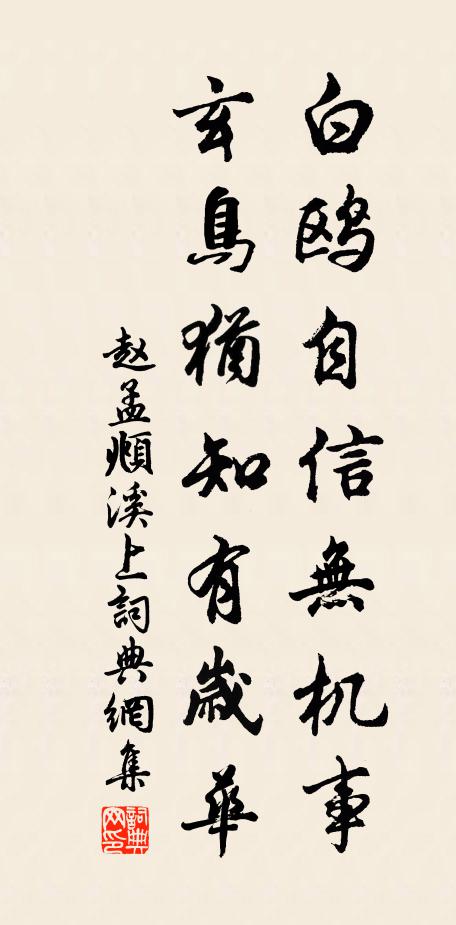 白鸥自信無机事
玄鳥猶知有歲華
赵孟頫溪上詞典網集
詞典网印